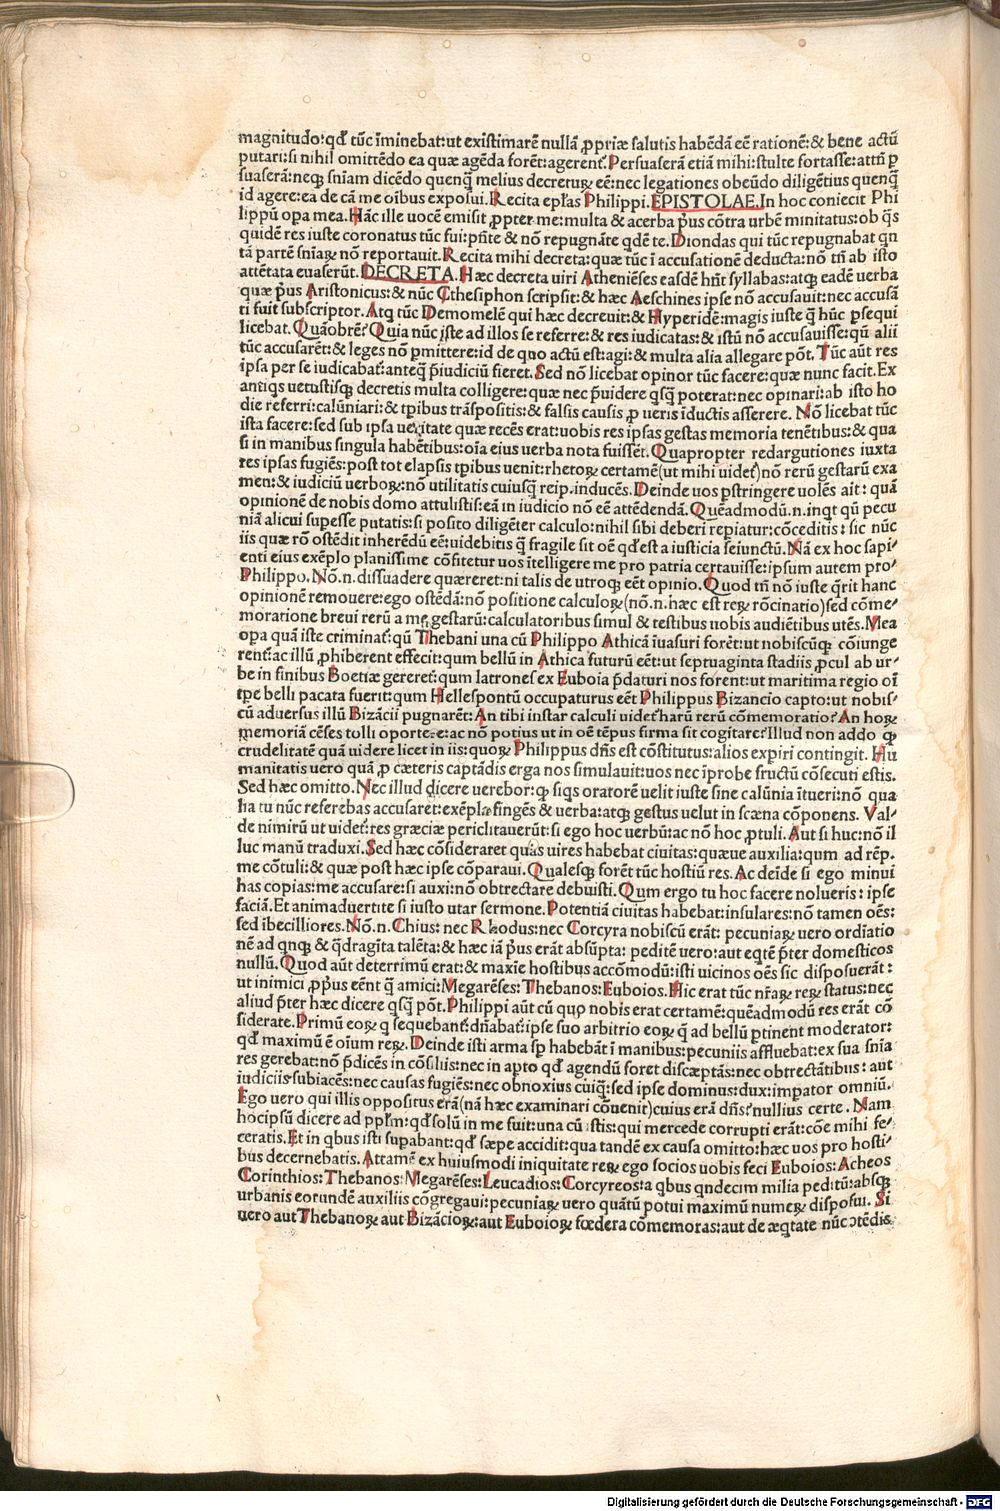 magnitudo:qď tūc īminebat:ut existimarē nullā ꝓpriæ salutis habēdā eē rationē:& bene actū
putari:si nihil omittēdo ea quæ agēda forēt:agerent᷑. Persuaserā etiā mihi:stulte fortasse:attñ ꝑ
suaserā:neqꝫ sñiam dicēdo quenq̄ melius decretuꝝ eē:nec legationes obeūdo diligētius quenq̄
id agere:ea de cā me oībus exposui. Recita epľas Philippi. EPISTOLAE. In hoc coniecit Phi
lippū opa mea. Hāc ille uocē emisit ꝓpter me:multa & acerba p̄us cōtra urbē minitatus:ob q̄s
quidē res iuste coronatus tūc fui:pñte & nō repugnāte qdē te. Diondas qui tūc repugnabat qn
tā partē sñiaꝝ nō reportauit. Recita mihi decreta:quæ tūc ī accusationē deducta:nō tñ ab isto
attētata euaserūt. DECRETA. Hæc decreta uiri Atheniēses easdē hñt syllabas:atqꝫ eadē uerba
quæ p̄us Aristonicus:& nūc Cthesiphon scripsit:& hæc Aeschines ipse nō accusauit:nec accusā
ti fuit subscriptor. Atq tūc Demomelē qui hæc decreuit:& Hyperidē:magis iuste q̄ hūc ꝓsequi
licebat. Quāobrē? Quia nūc iste ad illos se referre:& res iudicatas:& istū nō accusauisse:qū alii
tūc accusarēt:& leges nō ꝑmittere:id de quo actū est:agi:& multa alia allegare pōt. Tūc aūt res
ipsa per se iudicabat᷑:anteq̄ p̄iudiciū fieret. Sed nō licebat opinor tūc facere:quæ nunc facit. Ex
antiqs uetustisqꝫ decretis multa colligere:quæ nec p̄uidere qsq̄ poterat:nec opinari:ab isto ho
die referri:calūniari:& tꝑibus trāspositis:& falsis causis ꝓ ueris īductis asserere. Nō licebat tūc
ista facere:sed sub ipsa ueritate quæ recēs erat:uobis res ipsas gestas memoria tenētibus:& qua
si in manibus singula habētibus:oīa eius uerba nota fuissēt. Quapropter redargutiones iuxta
res ipsas fugiēs:post tot elapsis tꝑibus uenit:rhetoꝝ certamē(ut mihi uidet᷑)nō rerū gestarū exa
men:& iudiciū uerboꝝ:nō utilitatis cuiusq̄ reip.inducēs. Deinde uos ꝑstringere uolēs ait: quā
opinionē de nobis domo attulistis:eā in iudicio nō eē attēdendā. Quēadmodū.n.inqt qū pecu
niā alicui supesse putatis:si posito diligēter calculo:nihil sibi deberi repiatur:cōceditis: sic nūc
iis quæ rō ostēdit inherēdū eē:uidebitis q̄ fragile sit oē qď est a iusticia seiunctū. Nā ex hoc sapi-
enti eius exēplo planissime cōfitetur uos ītelligere me pro patria certauisse:ipsum autem pro-
Philippo. Nō.n.dissuadere quæreret:ni talis de utroqꝫ eēt opinio. Quod tñ nō iuste q̄rit hanc
opinionē remouere:ego ostēdā:nō positione calculoꝝ(nō.n.hæc est reꝝ rōcinatio)sed cōme-
moratione breui rerū a me gestarū:calculatoribus simul & testibus uobis audiētibus utēs. Mea
opa quā iste criminat᷑:qū Thebani una cū Philippo Athicā iuasuri forēt:ut nobiscūqꝫ cōiunge
rent᷑:ac illū ꝓhiberent effecit:qum bellū in Athica futurū eēt:ut septuaginta stadiis ꝓcul ab ur-
be in finibus Boetiæ gereret᷑:qum latrones ex Euboia p̄daturi nos forent:ut maritima regio oī
tꝑe belli pacata fuerit:qum Hellespontū occupaturus eēt Philippus Bizancio capto:ut nobis-
cū aduersus illū Bizācii pugnarēt:An tibi instar calculi uidet᷑ harū rerū cōmemoratio? An hoꝝ
memoriā cēses tolli oportere:ac nō potius ut in oē tēpus firma sit cogitare? Illud non addo qꝫ
crudelitatē quā uidere licet in iis:quoꝝ Philippus dñs est cōstitutus:alios expiri contingit. Hu
manitatis uero quā ꝓ cæteris captādis erga nos simulauit:uos nec īprobe fructū cōsecuti estis.
Sed hæc omitto. Nec illud dicere uerebor:qꝫ siqs oratorē uelit iuste sine calūnia ītueri:nō qua
lia tu nūc referebas accusaret:exēpla fingēs & uerba:atqꝫ gestus uelut in scæna cōponens. Val-
de nimirū ut uidet᷑:res græciæ periclitauerūt:si ego hoc uerbū:ac nō hoc ꝓtuli. Aut si huc:nō il
luc manū traduxi. Sed hæc cōsideraret quas uires habebat ciuitas:quæue auxilia:qum ad rēp.
me cōtuli:& quæ post hæc ipse cōparaui. Qualesqꝫ forēt tūc hostiū res. Ac deīde si ego minui
has copias:me accusare:si auxi:nō obtrectare debuisti. Qum ergo tu hoc facere nolueris: ipse
faciā. Et animaduertite si iusto utar sermone. Potentiā ciuitas habebat:insulares:nō tamen oēs:
sed ibecilliores. Nō.n. Chius: nec Rhodus:nec Corcyra nobiscū erāt: pecuniaꝝ uero ordīatio
nē ad qnqꝫ & q̄dragīta talēta:& hæc iā p̄us erāt absūpta: peditē uero:aut eqtē p̄ter domesticos
nullū. Quod aūt deterrimū erat:& maxīe hostibus accōmodū:isti uicinos oēs sic disposuerāt:
ut inimici ꝓp̄us eēnt q̄ amici:Megarēses:Thebanos:Euboios. Hic erat tūc nr̄aꝝ reꝝ status:nec
aliud p̄ter hæc dicere qsq̄ pōt. Philippi aūt cū quo nobis erat certamē:quēadmodū res erāt cō
siderate. Primū eoꝝ q sequebant᷑:dñabat᷑:ipse suo arbitrio eoꝝ q̄ ad bellū ꝑtinent moderator:
qď maximū ē oīum reꝝ. Deinde isti arma sꝑ habebāt ī manibus:pecuniis affluebat:ex sua sñia
res gerebat:nō p̄dicēs in cōsiliis:nec in apto qď agendū foret discæptās:nec obtrectātibus: aut
iudiciis subiacēs:nec causas fugiēs:nec obnoxius cuiq̄:sed ipse dominus:dux:impator omniū.
Ego uero qui illis oppositus erā(nā hæc examinari cōuenit)cuius erā dñs? nullius certe. Nam
hocipsū dicere ad ppľm:qď solū in me fuit:una cū istis:qui mercede corrupti erāt:cōe mihi fe-
ceratis. Et in qbus isti supabant:qď sæpe accidit:qua tandē ex causa omitto:hæc uos pro hosti-
bus decernebatis. Attamē ex huiusmodi iniquitate reꝝ ego socios uobis feci Euboios:Acheos
Corinthios:Thebanos:Megarēses:Leucadios:Corcyreos:a qbus qndecim milia peditū:absqꝫ
urbanis eorundē auxiliis cōgregaui:pecuniaꝝ uero quātū potui maximū numeꝝ disposui. Si
uero aut Thebanoꝝ aut Bizācioꝝ:aut Euboioꝝ fœdera cōmemoras:aut de æqtate nūc ↄtēdis
Digitalisierung gefördert durch die Deutsche Forschungsgemeinschaft - DFG